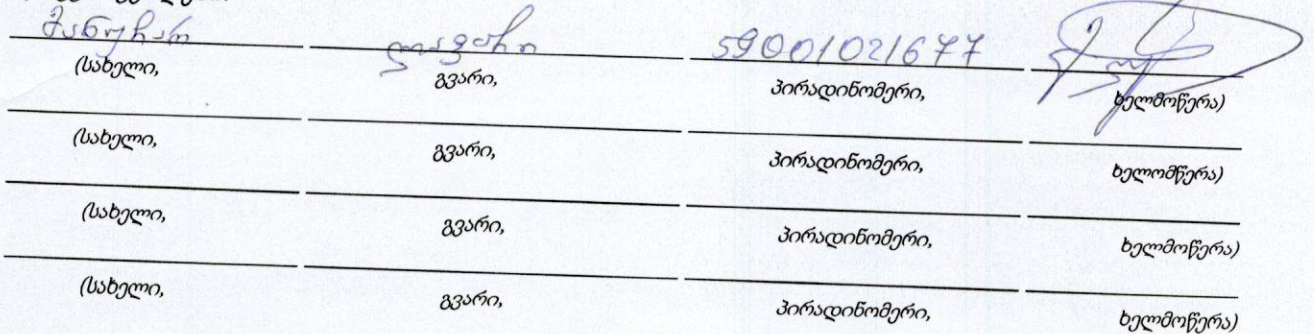 მანუჩარ 59001021677
(სახელი, გვარი, პირადინომერი, ხელმოწერა)
(სახელი, გვარი, პირადინომერი, ხელომწერა)
(სახელი, გვარი, პირადინომერი, ხელმოწერა)
(სახელი, გვარი, პირადინომერი, ხელმოწერა)